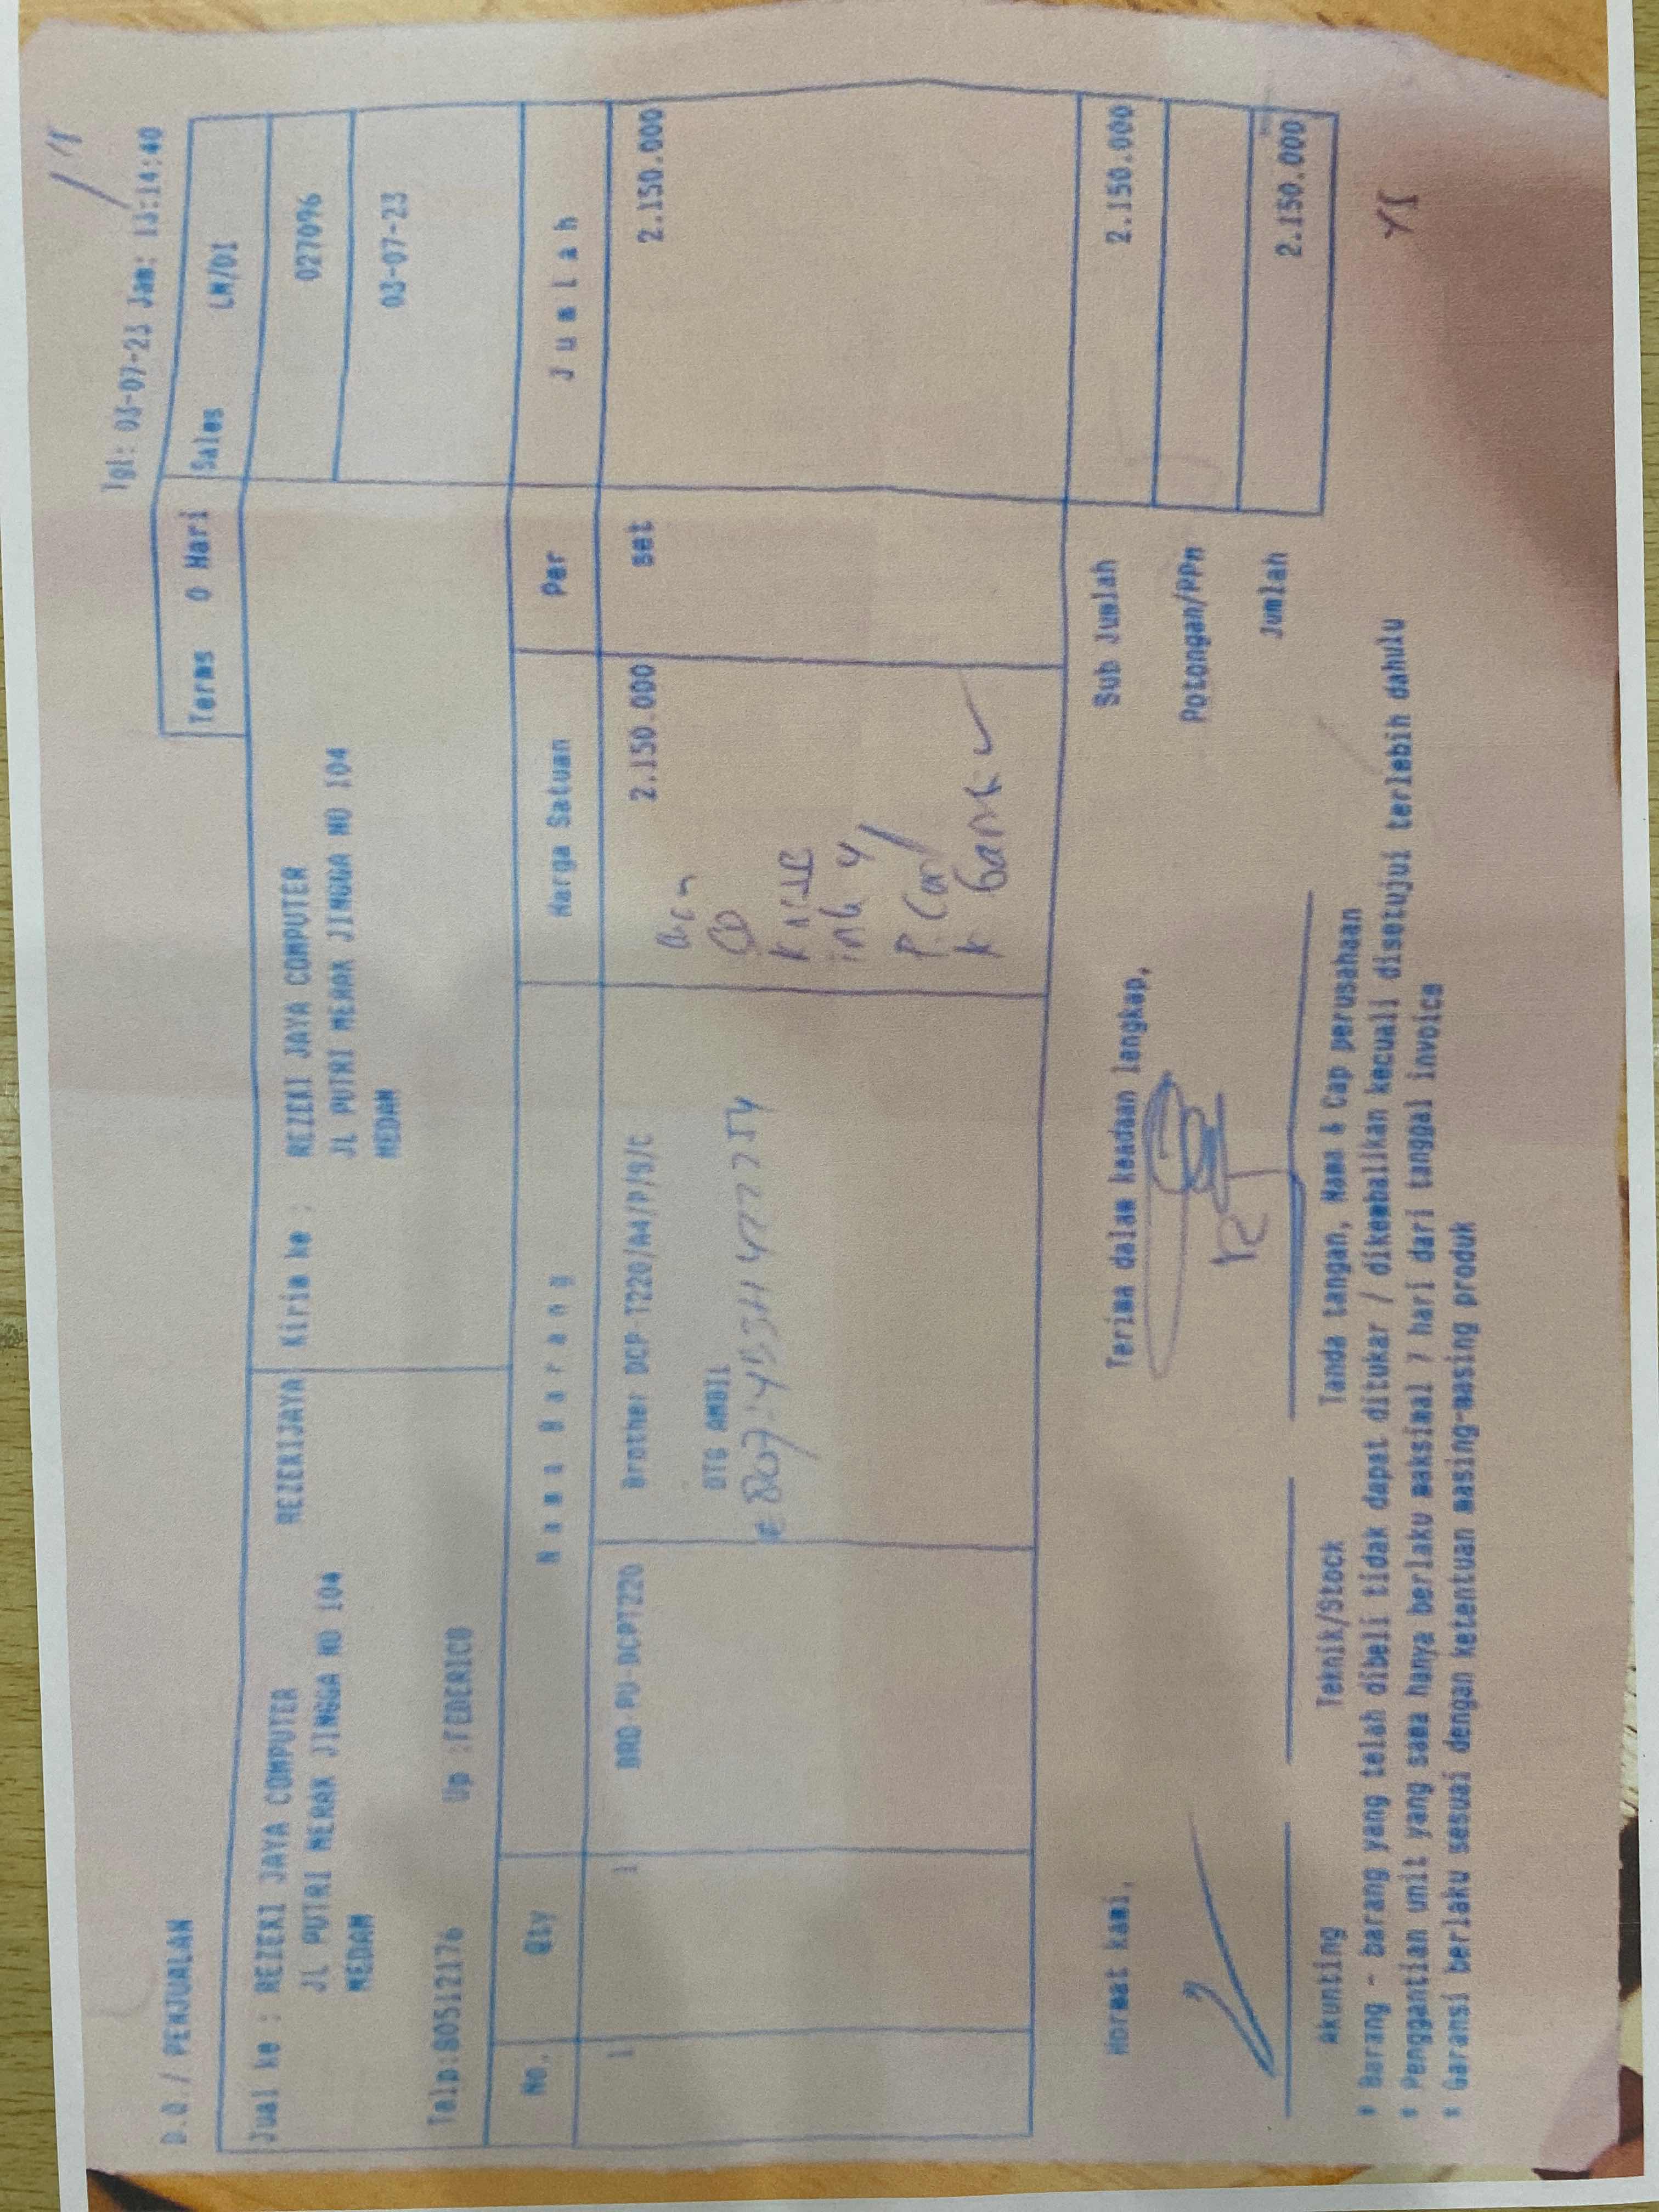 Tgl: 03-07-23 Jam: 13:14:40
D.O./ PENJUALAN
Terms 0 Hari Sales LM/DI
Jual ke : REZEKI JAYA COMPUTER REZEKIJAYA Kirim ke : REZEKI JAYA COMPUTER 027096
JL PUTRI MERAK JINGGA NO 104 JL PUTRI MERAK JINGGA NO 104
MEDAN MEDAN 03-07-23
Telp:80512176 Up :FEDERICO
No. Qty Nama Barang Harga Satuan Per Jumlah
1 1 BRO-PU-DCPT220 Brother DCP-T220/A4/P/S/C 2.150.000 set 2.150.000
DTG AMBIL
CD
ink 4
k Garansi
Hormat kami, Terima dalam keadaan lengkap, Sub Jumlah 2.150.000
Potongan/PPn
Jumlah 2.150.000
Akunting Teknik/Stock Tanda tangan, Nama & Cap perusahaan
* Barang - barang yang telah dibeli tidak dapat ditukar / dikembalikan kecuali disetujui terlebih dahulu
* Penggantian unit yang sama hanya berlaku maksimal 7 hari dari tanggal invoice
* Garansi berlaku sesuai dengan ketentuan masing-masing produk